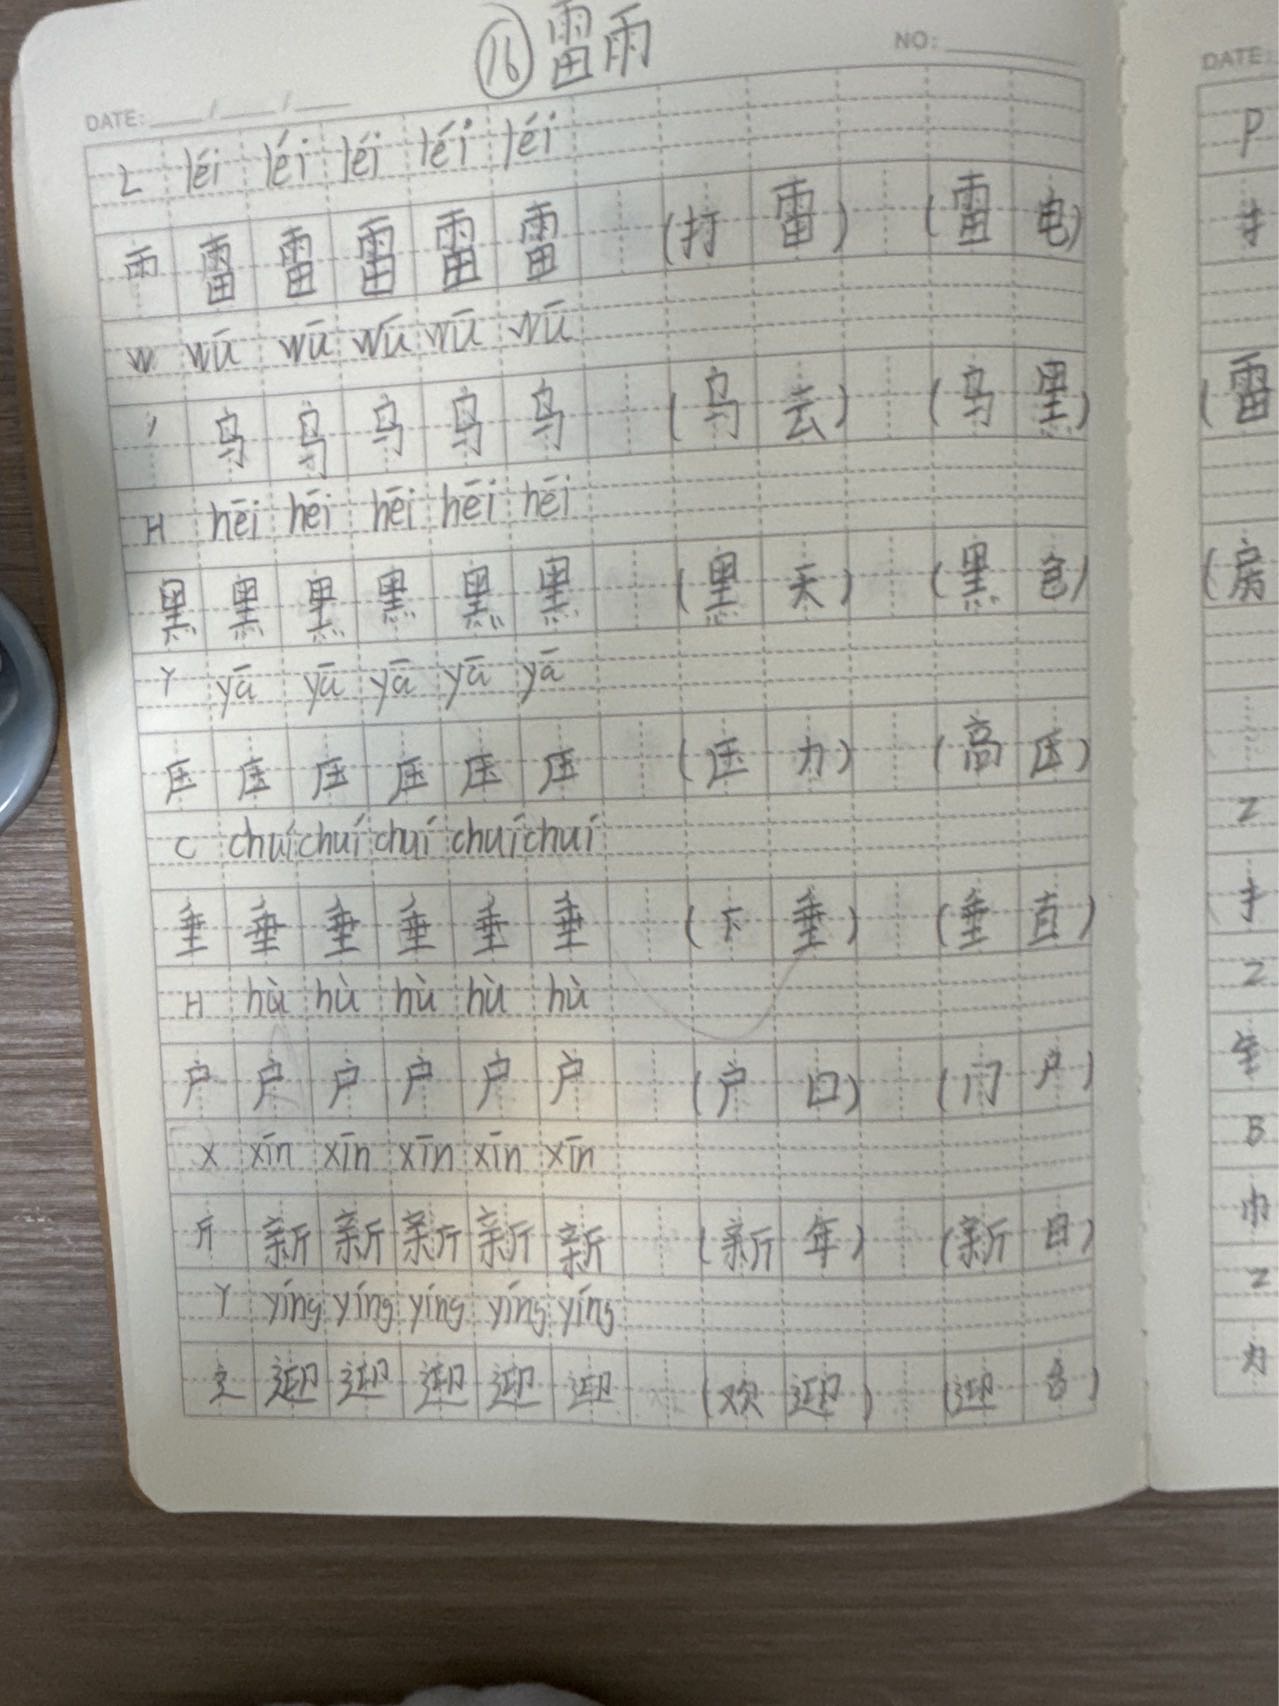 ⑯雷雨
DATE: ___/___/___ NO: ______
L léi léi léi léi léi
雨 雷 雷 雷 雷 雷 (打雷) (雷电)
W wū wū wū wū wū
丿 乌 乌 乌 乌 乌 (乌云) (乌黑)
H hēi hēi hēi hēi hēi
黑 黑 黑 黑 黑 黑 (黑天) (黑色)
Y yā yā yā yā yā
压 压 压 压 压 压 (压力) (高压)
C chuí chuí chuí chuí chuí
垂 垂 垂 垂 垂 垂 (下垂) (垂直)
H hù hù hù hù hù
户 户 户 户 户 户 (户口) (门户)
X xīn xīn xīn xīn xīn
斤 新 新 新 新 新 (新年) (新日)
Y yíng yíng yíng yíng yíng
辶 迎 迎 迎 迎 迎 (欢迎) (迎
DATE:
P
扌
(雷
(房
Z
扌
Z
B
巾
Z